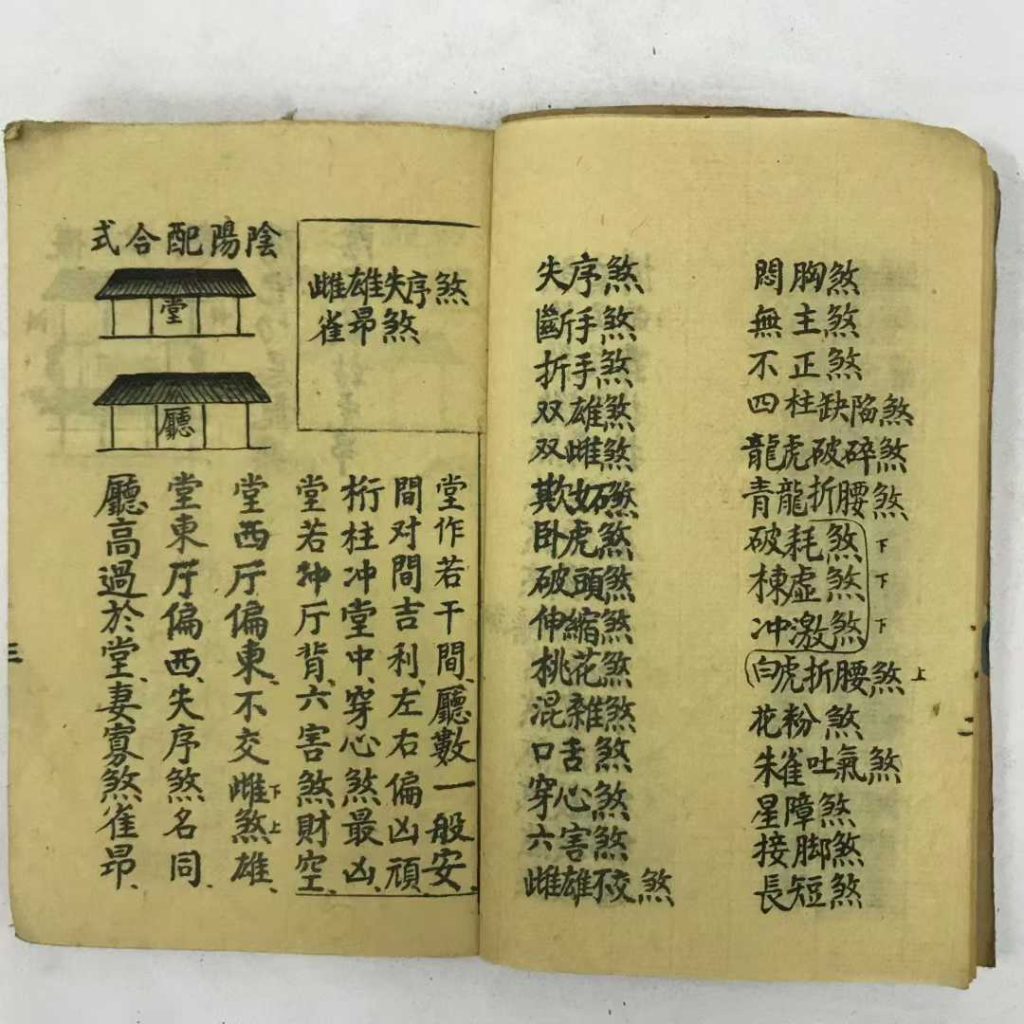 悶胸煞
無主煞
不正煞
四柱缺陷煞
龍虎破碎煞
青龍折腰煞
破耗煞 下
棟虛煞 下
冲激煞 下
白虎折腰煞 上
花粉煞
朱雀吐氣煞
星障煞
接脚煞
長短煞
二
失序煞
斷手煞
折手煞
双雄煞
双雌煞
欺妬煞
卧虎煞
破頭煞
伸縮煞
桃花煞
混雜煞
口舌煞
穿心煞
六害煞
雌雄不交煞
雌雄失序煞
雀昂煞
陰陽配合式
堂
廳
堂作若干間廳數一般安、
間对間吉利、左右偏凶頑、
桁柱冲堂中、穿心煞最凶、
堂若冲厅背、六害煞財空、
堂西厅偏東、不交雌下煞上雄、
堂東厅偏西、失序煞名同、
廳高過於堂、妻寡煞雀昂、
三